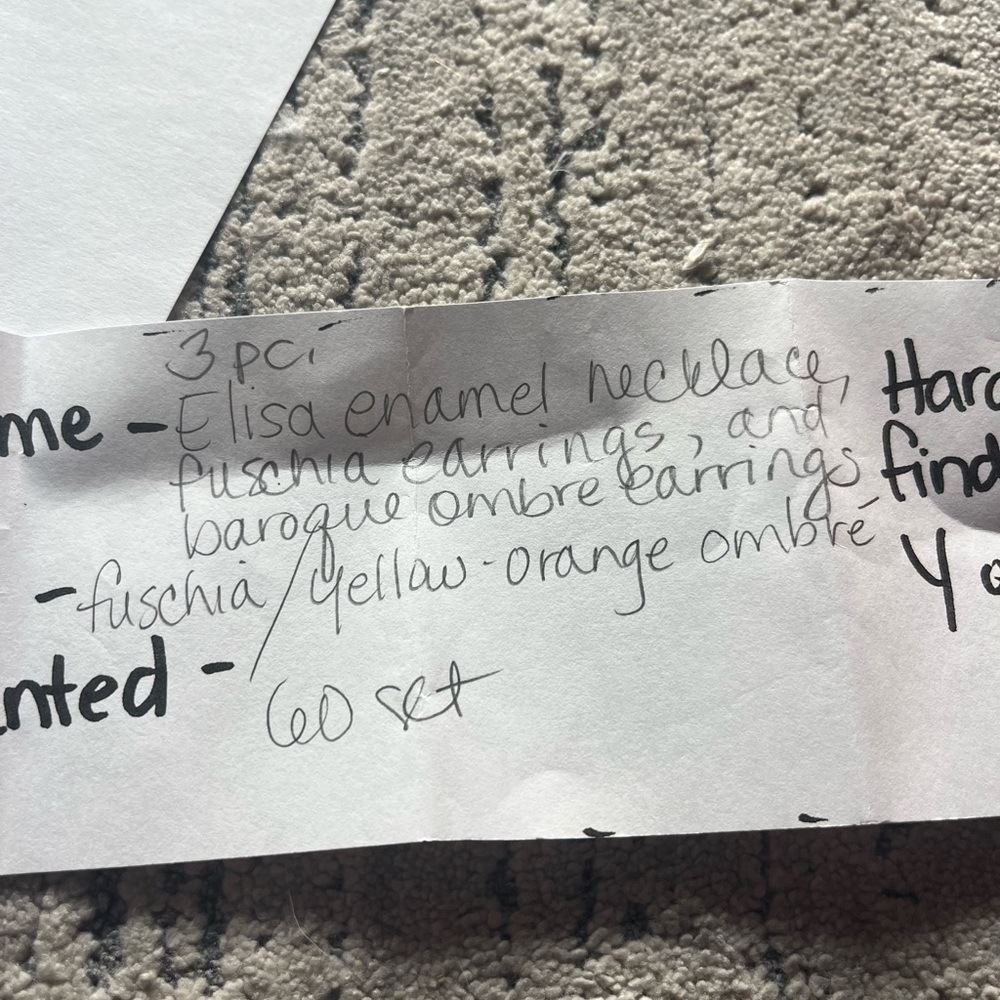 3 pc.
me - Elisa enamel necklace, Hard
fuschia earrings, and
baroque ombre earrings find
- fuschia / yellow-orange ombré Y
nted - 60 set